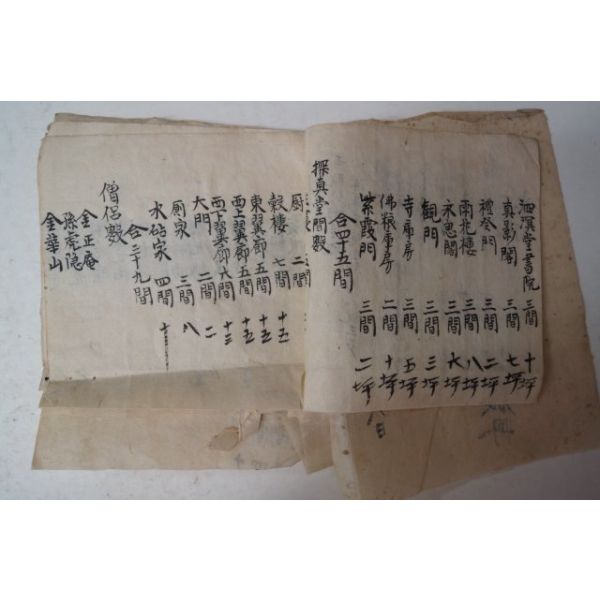 泗溟堂書院 三間 十坪
真影閣 三間 七坪
禮祭門 三間 二坪
雨花樓 三間 八坪
永思閣 二間 六坪
觀門 三間 三坪
寺庫房 三間 五坪
佛粮庫房 二間 十坪
紫霞門 三間 二坪
合四十五間
探真堂間數
厨 二間
穀樓 七間 十五
東翼廊 五間 十五
西上翼廊 五間 十五
西下翼廊 六間 十三
大門 二間 二
厠家 三間 八
水砧家 四間 十
合三十九間
僧侶數
金正庵
孫虎隐
金華山